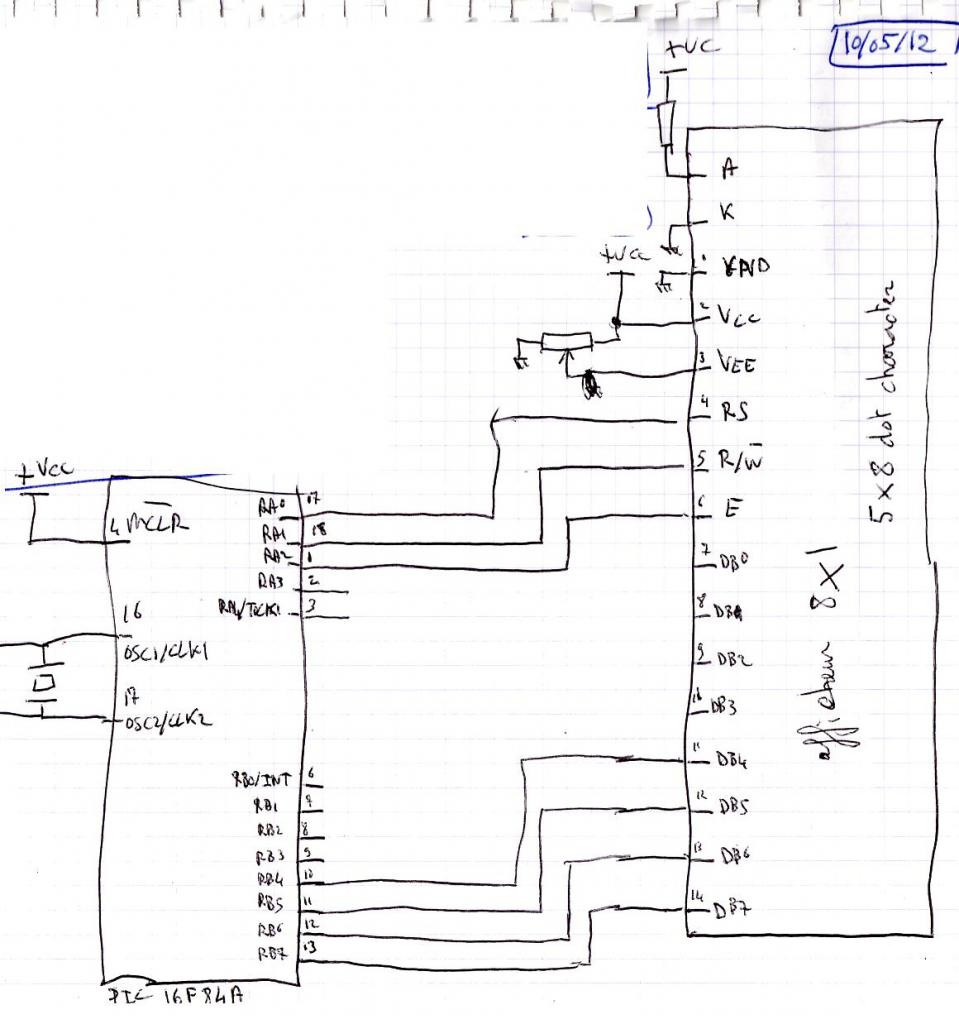 10/05/12
+VCC
A
K
+Vcc
1 GND
2 Vcc
3 VEE
4 RS
5 R/W̅
6 E
7 DB0
8 DB1
9 DB2
10 DB3
11 DB4
12 DB5
13 DB6
14 DB7
5x8 dot character
afficheur 8x1
+Vcc
4 M̅C̅L̅R̅
16
OSC1/CLK1
17
OSC2/CLK2
RA0 17
RA1 18
RA2 1
RA3 2
RA4/TOCK1 3
RB0/INT 6
RB1 7
RB2 8
RB3 9
RB4 10
RB5 11
RB6 12
RB7 13
PIC 16F84A